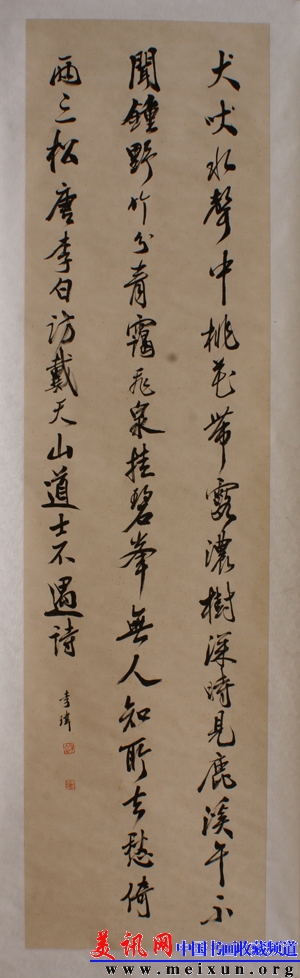 犬吠水聲中桃花帶露濃樹深時見鹿溪午不
聞鐘野竹分青靄飛泉挂碧峯無人知所去愁倚
兩三松唐李白訪戴天山道士不遇詩
美讯网 中国书画收藏频道
www.meixun.org